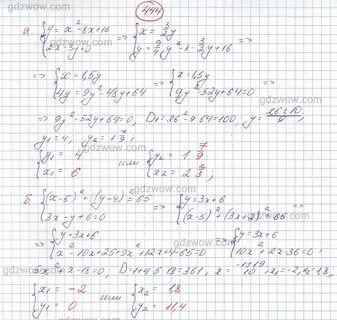 444
а) {y = x² - 8x + 16 {2x - 3y = 0 => {x = 3/2 y {y = 9/4 y² - 8 · 3/2 y + 16 =>
=> {x = 1,5y {4y = 9y² - 48y + 64 => {x = 1,5y {9y² - 52y + 64 = 0 =>
=> 9y² - 52y + 64 = 0, D₁ = 26² - 9·64 = 100, y = (26 ± 10)/9,
y₁ = 4; y₂ = 1 7/9;
{y₁ = 4 {x₁ = 6 или {y₂ = 1 7/9 {x₂ = 2 2/3;
б) {(x-5)² + (y-4)² = 65 {3x - y + 6 = 0 => {y = 3x + 6 {(x-5)² + (3x+2)² = 65 =>
=> {y = 3x + 6 {x² - 10x + 25 + 9x² + 12x + 4 - 65 = 0 {y = 3x + 6 {10x² + 2x - 36 = 0;
5x² + x - 18 = 0, D = 1 + 4·5·18 = 361, x = (-1 ± 19)/10, x₁ = -2, 1,8,
{x₁ = -2 {y₁ = 0 или {x₂ = 1,8 {y₂ = 11,4
gdzwow.com